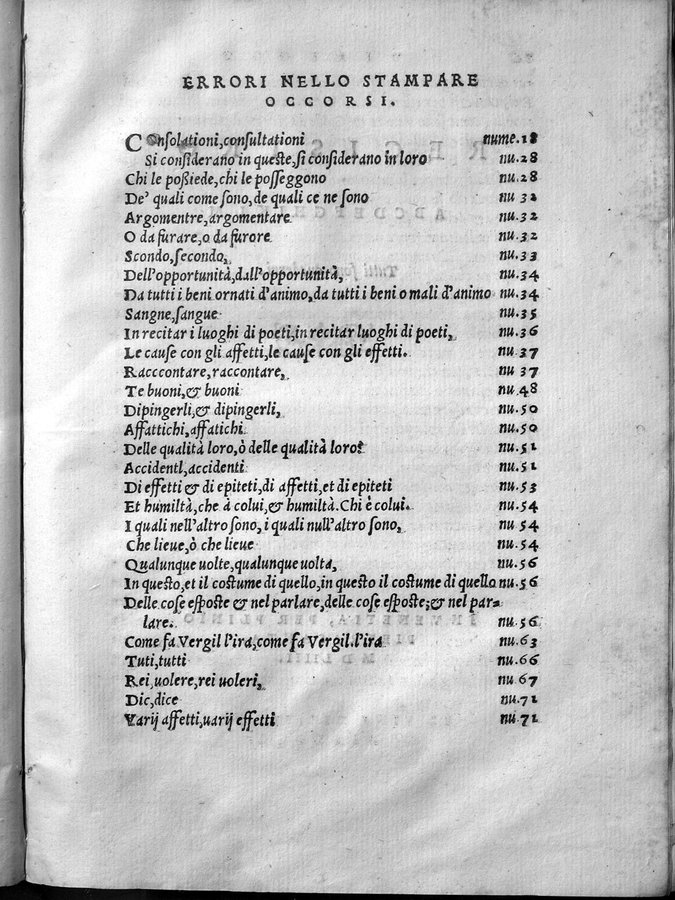 ERRORI NELLO STAMPARE
OCCORSI.
COnsolationi,consultationi nume.18
Si considerano in queste,si considerano in loro nu.28
Chi le poßiede,chi le posseggono nu.28
De' quali come sono,de quali ce ne sono nu 32
Argomentre,argomentare nu.32
O da furare,o da furore nu.32
Scondo,secondo, nu.33
Dell'opportunità,dall'opportunità, nu.34
Da tutti i beni ornati d'animo,da tutti i beni o mali d'animo nu.34
Sangne,sangue nu.35
In recitar i luoghi di poeti,in recitar luoghi di poeti, nu.36
Le cause con gli affetti,le cause con gli effetti. nu.37
Racccontare,raccontare, nu 37
Te buoni,& buoni nu.48
Dipingerli,& dipingerli, nu.50
Affattichi,affatichi nu.50
Delle qualità loro,ò delle qualità loro? nu.51
Accidentl,accidenti nu.51
Di effetti & di epiteti,di affetti,et di epiteti nu.53
Et humiltà,che à colui,& humiltà.Chi è colui. nu.54
I quali nell'altro sono,i quali null'altro sono, nu 54
Che lieue,ò che lieue nu.54
Qualunque uolte,qualunque uolta, nu.56
In questo,et il costume di quello,in questo il costume di quello nu.56
Delle cose esposte & nel parlare,delle cose esposte;& nel par-
lare. nu.56
Come fa Vergil l'ira,come fa Vergil.l'ira nu.63
Tuti,tutti nu.66
Rei,uolere,rei uoleri, nu.67
Dic,dice nu.71
Varij affetti,uarij effetti nu.71